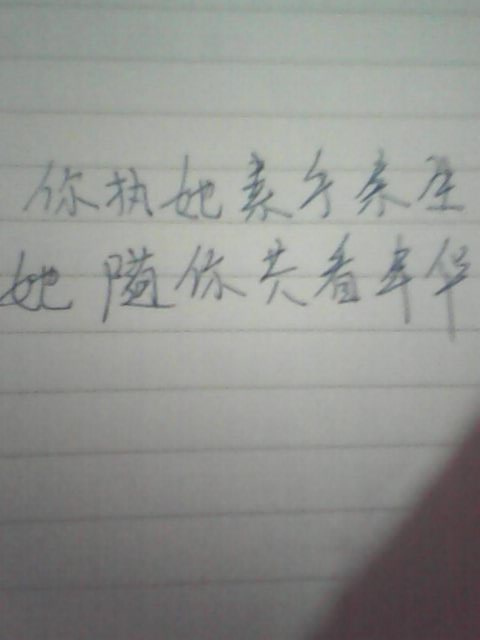 你执她素手余生
她随你共看年华